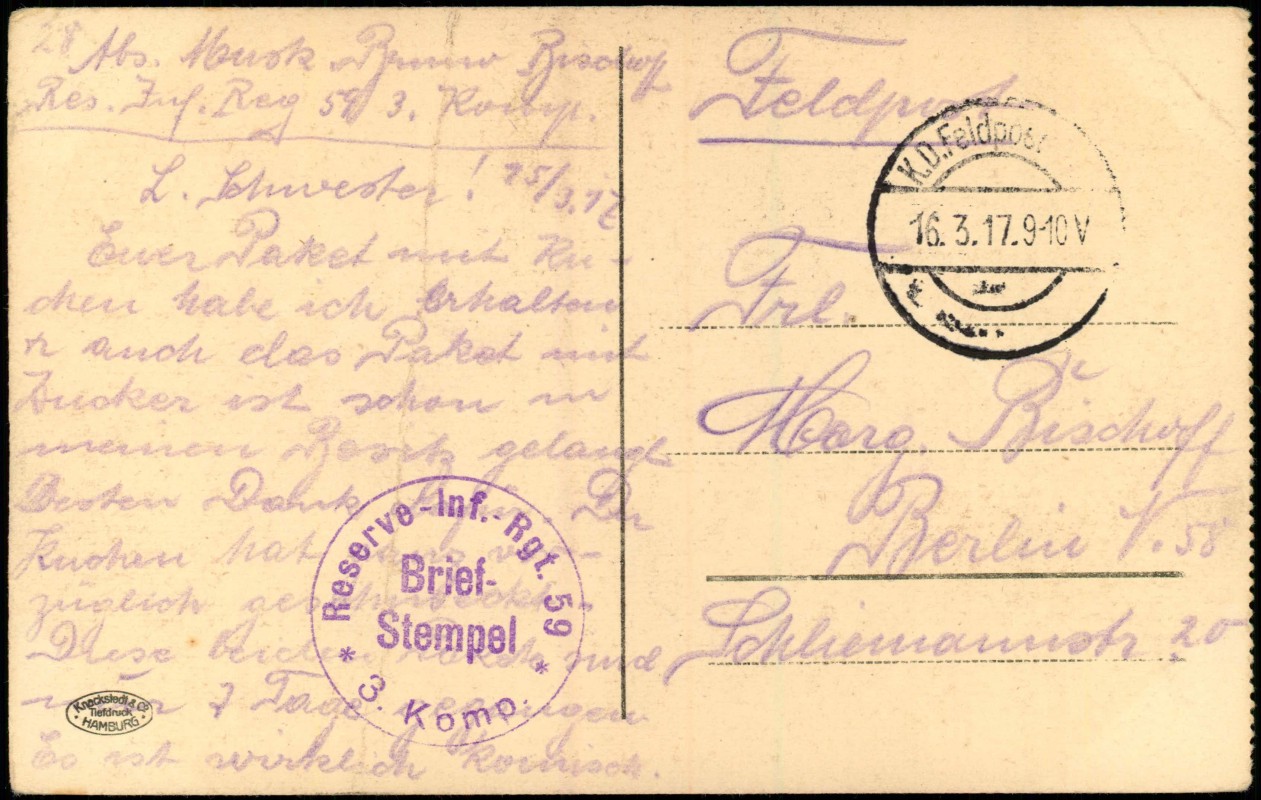 28
Abs. Musk. Bruno Bischoff
Res. Inf. Reg 59 3. Komp.
L. Schwester! 15/3.17
Euer Paket mit Ku-
chen habe ich erhalten
u auch das Paket mit
Zucker ist schon in
meinen Besitz gelangt
Besten Dank Der
Kuchen hat ganz vor-
züglich geschmeckt.
Diese beiden Pakete sind
nur 7 Tage gegangen
Es ist wirklich komisch.
Reserve-Inf.-Rgt. 59
Brief-
Stempel
* 3. Komp. *
Knackstedt & Co
Tiefdruck
HAMBURG
Feldpost
K.D.Feldpost
16.3.17.9-10V
Frl.
Marg. Bischoff
Berlin N. 58
Schliemannstr. 20